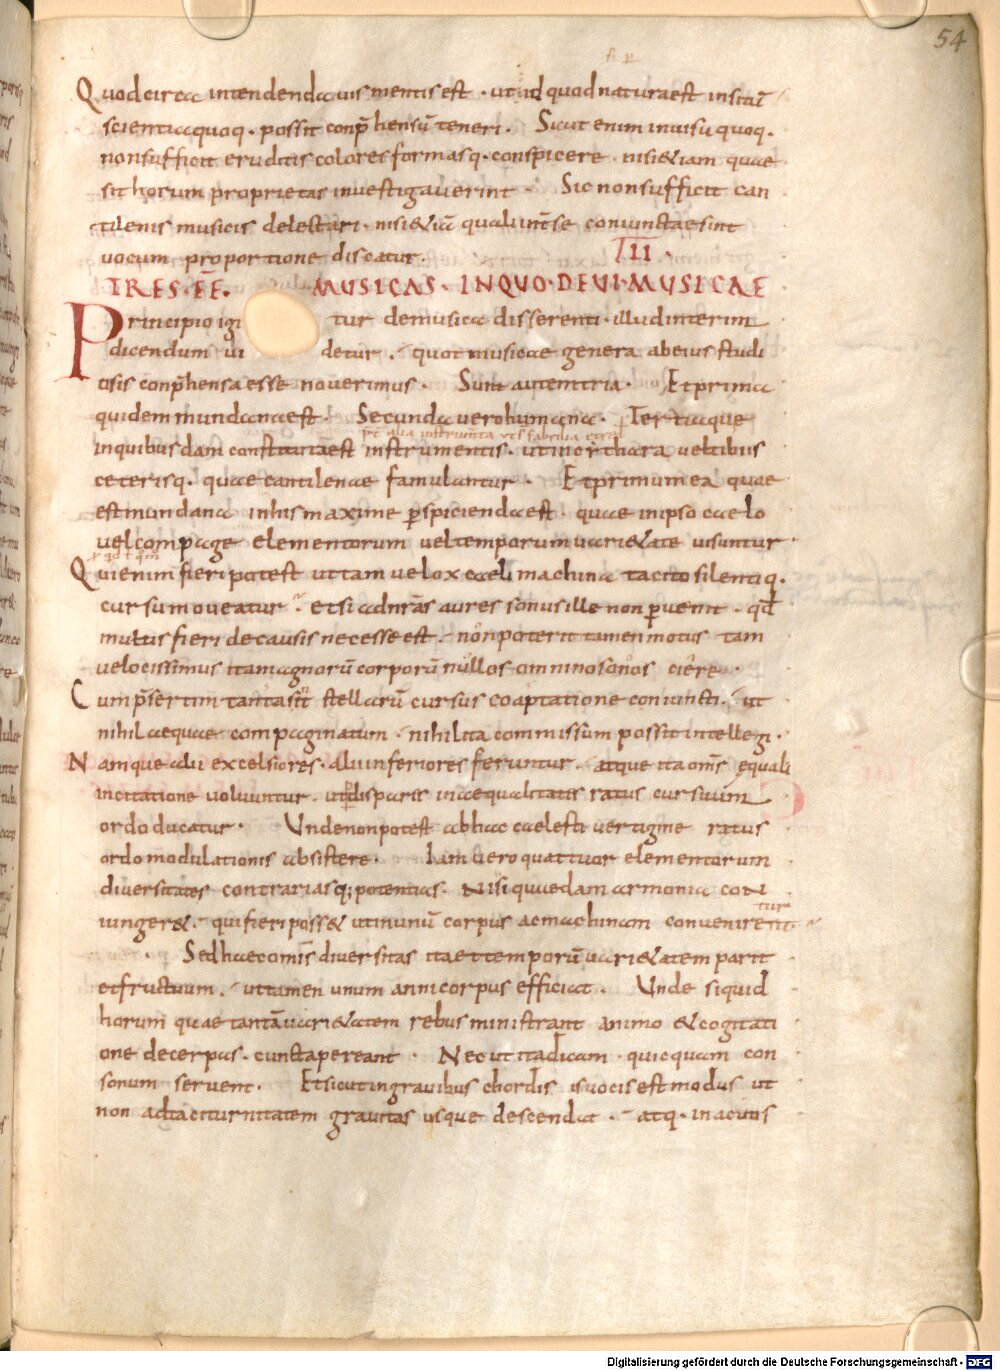 54
Quodcirca intendenda uis mentis est · ut id quod natura est insitū
scientia quoq· possit conp̄hensū teneri · Sicut enim in uisu quoq·
non sufficit eruditis colores formasq· conspicere · nisi &iam quae
sit horum proprietas inuestigauerint · Sic non sufficit can
tilenis musicis delectari · nisi &iā quali int̄ se coniunctae sint
uocum proportione discatur · II ·
TRES · EE͞ · MUSICAS · IN QUO · DE UI · MUSICAE
Principio igi tur de musica disserenti · illud interim
dicendum ui detur · quot musicae genera ab eius studi
osis conp̄hensa esse nouerimus · Sunt autem tria · Et prima
quidem mundana est · Secunda uero humana · Tertia que
in quibusdam constituta est instrumentis · ut in cithara uel tibiis
ceterisq· quae cantilenae famulantur · Et primum ea quae
est mundana in his maxime p̱spicienda est · quae in ipso caelo
uel compage elementorum uel temporum uari&ate uisuntur ·
Qui enim fieri potest ut tam uelox caeli machina tacito silentiq·
cursu moueatur · et si ad nr̄as aures sonus ille non p̱uenit · qđ
multis fieri de causis necesse est · non poterit tamen motus tam
uelocissimus ita magnorū corporū nullos omnino sonos ciere ·
Cum p̄sertim tanta sīt stellarū cursus coaptatione coniuncti · ut
nihil aequae compaginatum · nihil ita commissum possit intellegi ·
Namque alii excelsiores · alii inferiores feruntur · atque ita om̄s equali
incitatione uoluuntur · ut p̱ dispares inaequalitates ratus cursuum
ordo ducatur · Unde non potest ab hac caelesti uertigine ratus
ordo modulationis absistere · Iam uero quattuor elementorum
diuersitates contrariasq; potentias · Nisi quaedam armonia con
tur
iunger& · qui fieri poss& ut in unū corpus ac machinam conuenirent ·
Sed haec om̄is diuersitas ita et temporū uari&atem parit
et fructuum · ut tamen unum anni corpus efficiat · Unde siquid
horum quae tantā uari&atem rebus ministrant animo &cogitati
one decerpas · cuncta pereant · Nec ut ita dicam quicquam con
sonum seruent · Et sicut in grauibus chordis is uocis est modus ut
non ad taciturnitatem grauitas usque descendat · atq· in acutis
Digitalisierung gefördert durch die Deutsche Forschungsgemeinschaft - DFG